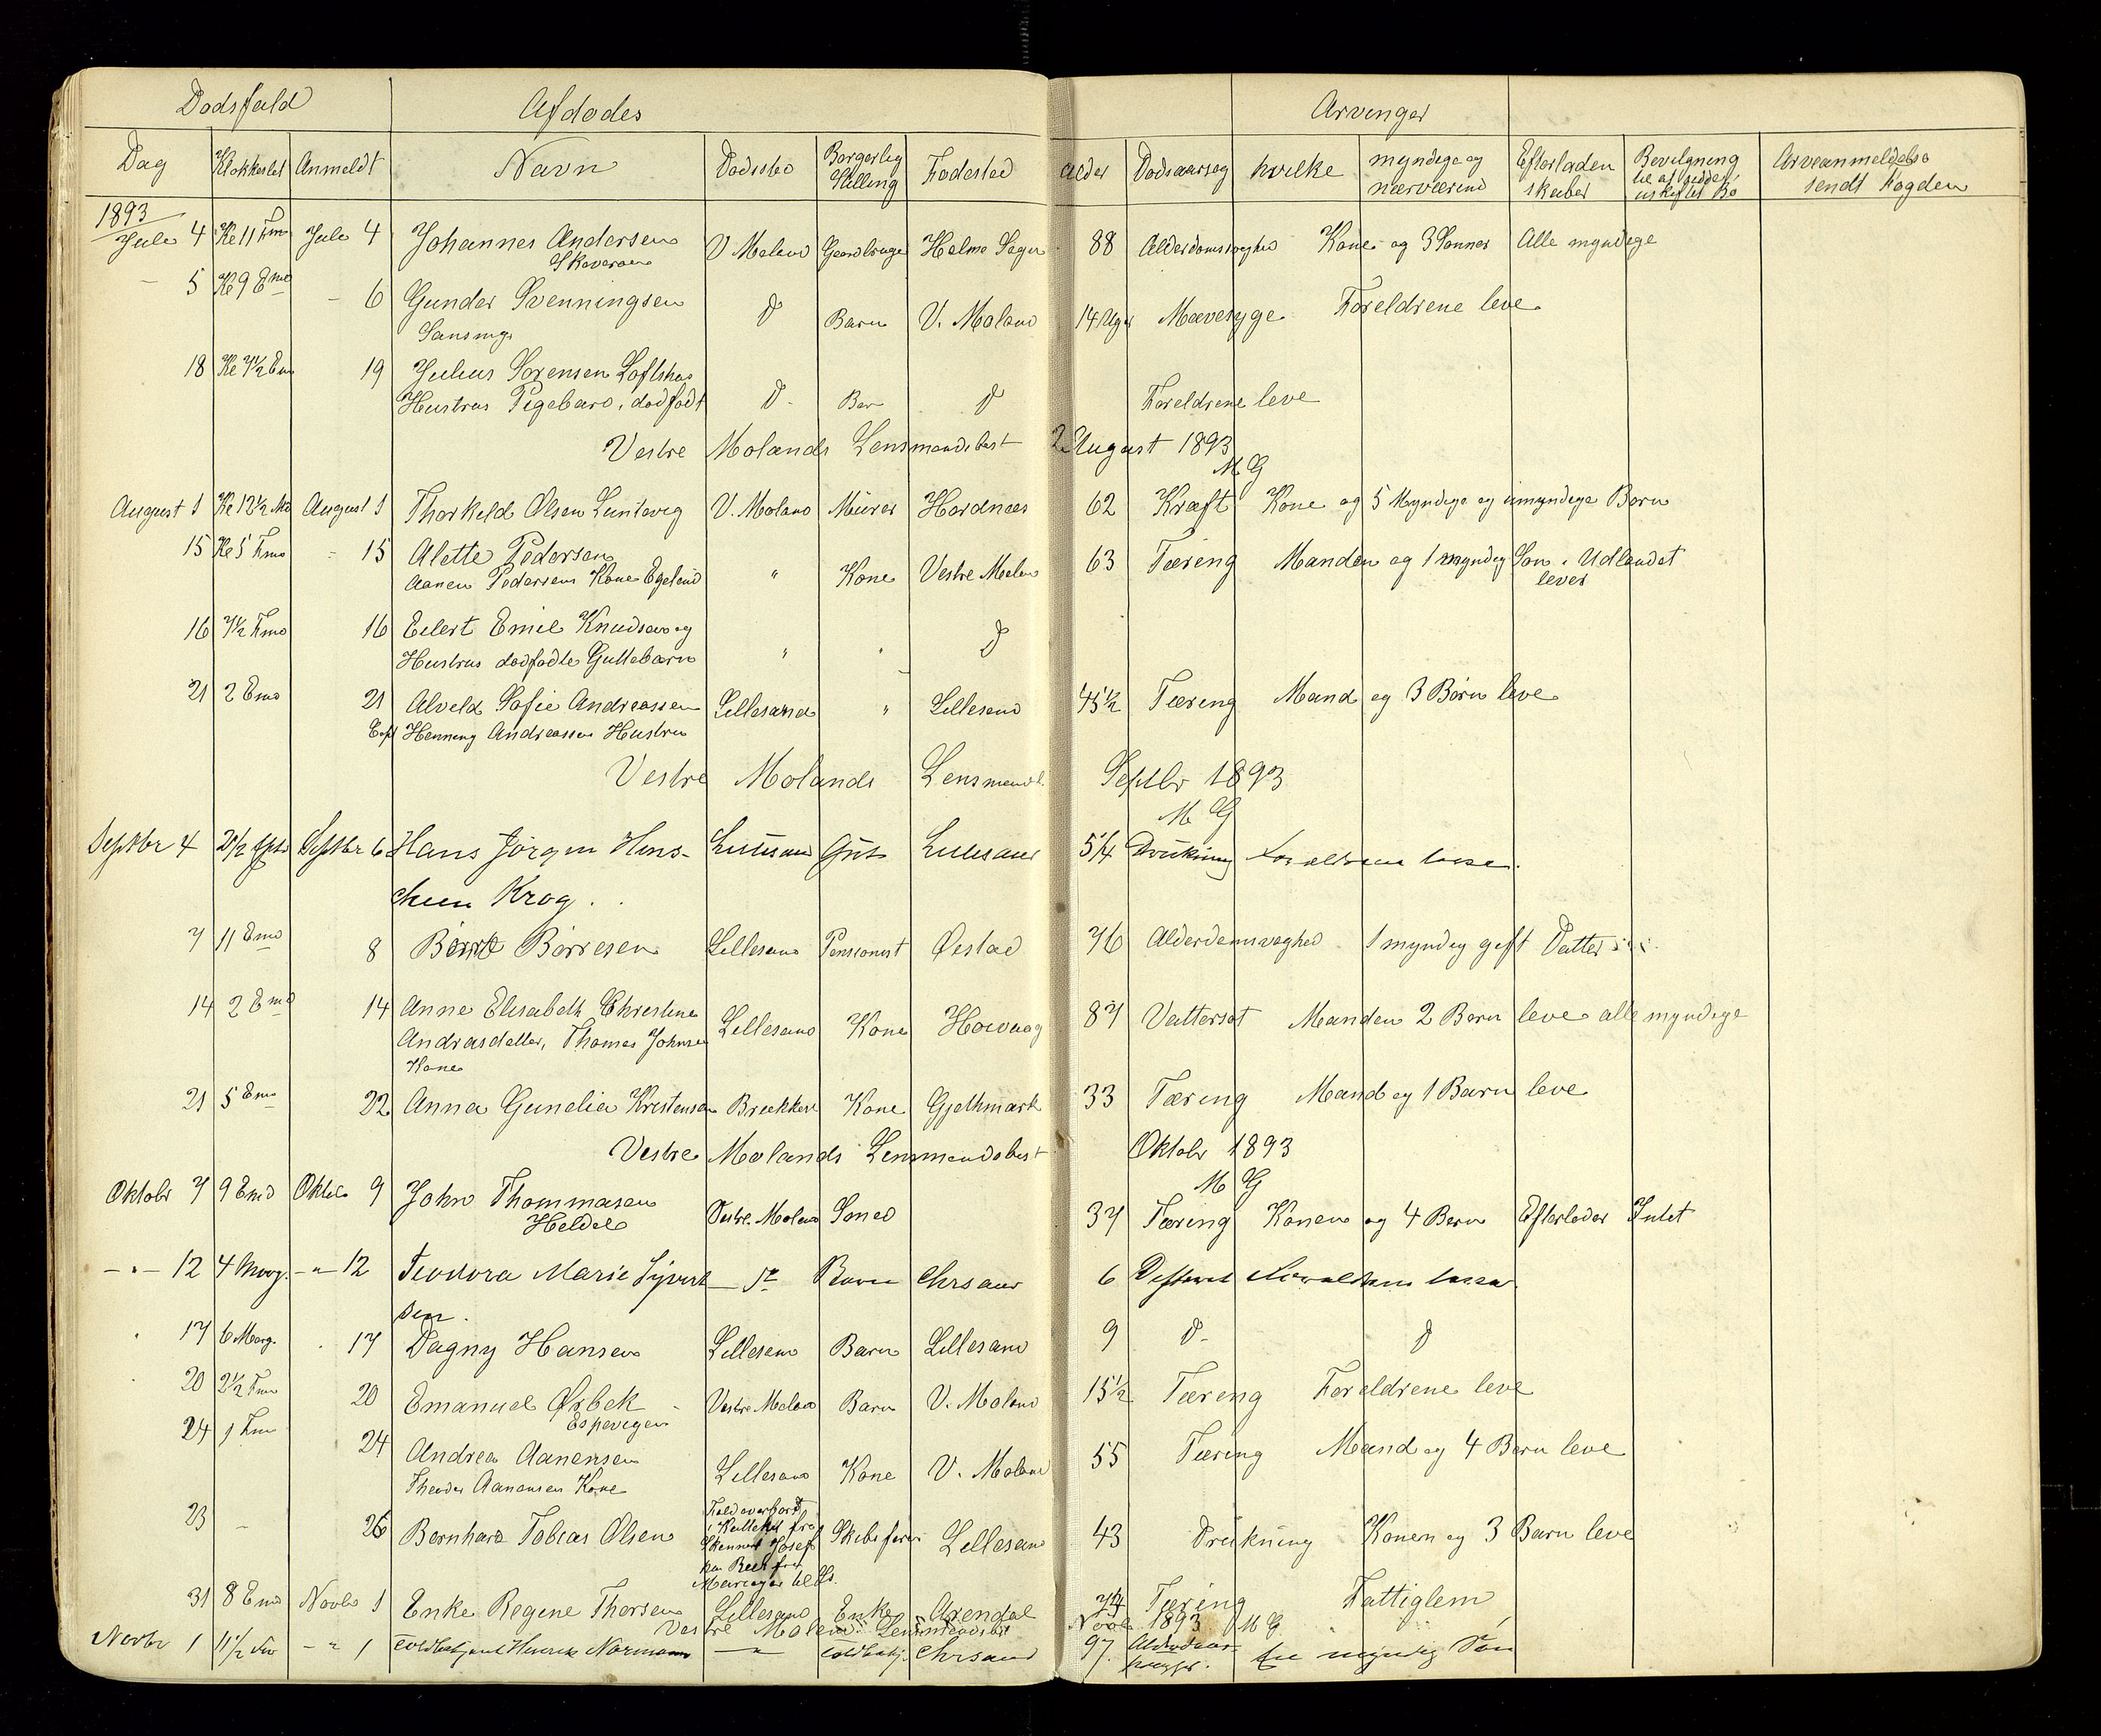 Dødsfald Afdødes Arvinger
Dag Klokkeslet Anmeldt Navn Dødssted Borgerlig Stilling Fødested Alder Dødsaarsag hvilke myndige og nærværend Efterladen skaber Bevilgning til at sidde i uskiftet Bo Arveanmeldelse sendt Fogden
1893
Juli 4 Kl 11 Fmd Juli 4 Johannes Andersen V. Moland Gaardbruger 88 Alderdomssvaghed Kone og 3 Sønner Alle myndige
5 Kl 9 Emd - 6 Gunder Svenningsen d Barn V. Moland 14 Uger Mavesyge Foreldrene leve
18 Kl 7½ Em 19 Julius Sørensen
Hustrus Pigebarn, dødfødt d - d Foreldrene leve
Vestre Molands Lensmandsbest 2 August 1893
M G
August 1 Kl 12½ August 1 Thorkeld Olsen V. Moland Murer 62 Kræft Kone og 5 Myndige og umyndige Børn
15 Kl 5 Fmd - 15 Alette Pedersen
Aanen Pedersens Kone Egeland " Kone Vestre Molan 63 Tæring Manden og 1 myndig Søn i Udlandet
lever
16 7½ Fmd 16 Eilert Emil Knudsen og
Hustrus dødfødte Guttebarn " " d
21 2 Emd 21 Alveld Sofie Andreassen Lillesand " Lillesand 45½ Tæring Mand og 3 Børn leve
Henning Andreassen Hustru
Vestre Molands Lensmandb. Septbr 1893
M G
Septbr 4 2½ Septbr 6 Hans Jørgen Hens- Lillesand Gut Lillesand 5¼ Drukning Foreldrene leve.
chien Krog.
7 11 Emd 8 Børresen Lillesand Pensionist Øestad 76 Alderdomsvaghed 1 myndig gift Datter
14 2 Emd 14 Anne Elisabeth Christine
Andrasdatter, Thomas Johnsen Lillesand Kone Høivaag 87 Vattersot Manden 2 Børn leve alle myndige
Kone
21 5 Emd 22 Anna Gunelia Kristensen Kone 33 Tæring Mand og 1 Barn leve
Vestre Molands Lensmandsbest Oktobr 1893
M G
Oktobr 7 9 Emd Oktbr 9 John Thommasen Vestre Moland 37 Tæring Konen og 4 Børn Efterlader Intet
Heldal
- " - 12 4 Morg. - " - 12 Teodora Marie Syvert Barn Chrsand 6 Foreldrene leve
sen.
17 6 Morg. 17 Dagny Hansen Lillesand Barn Lillesand 9 d - d
20 2½ Fmd 20 Emanuel Ørbek Vestre Moland Barn V. Moland 15½ Tæring Foreldrene leve
Espevigen
24 1 Fmd 24 Andrea Aanensen
Theodor Aanensen Kone Lillesand Kone V. Moland 55 Tæring Mand og 4 Børn leve
23 - 26 Bernhard Tobias Olsen Skibsfører Lillesand 43 Drukning Konen og 3 Barn leve
31 8 Emd Novbr 1 Enke Regine Thorsen Lillesand Enke Arendal 74 Tæring Fattiglem
Vestre Moland Lensmandsbest Novbr 1893 M G
Novbr 1 11½ - " 1 Toldbetjent Henrik Normann - " - Toldbetj. Chrsand 97. En myndig Søn